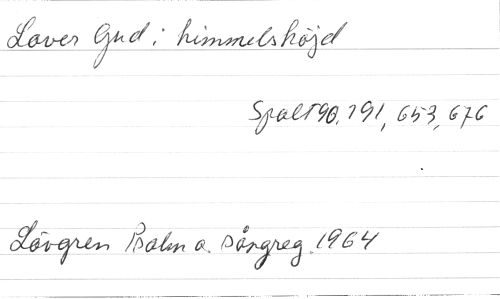 Lover Gud i himmelshöjd
Spalt 90, 791, 653, 676
Lövgren Psalm o. sångreg. 1964